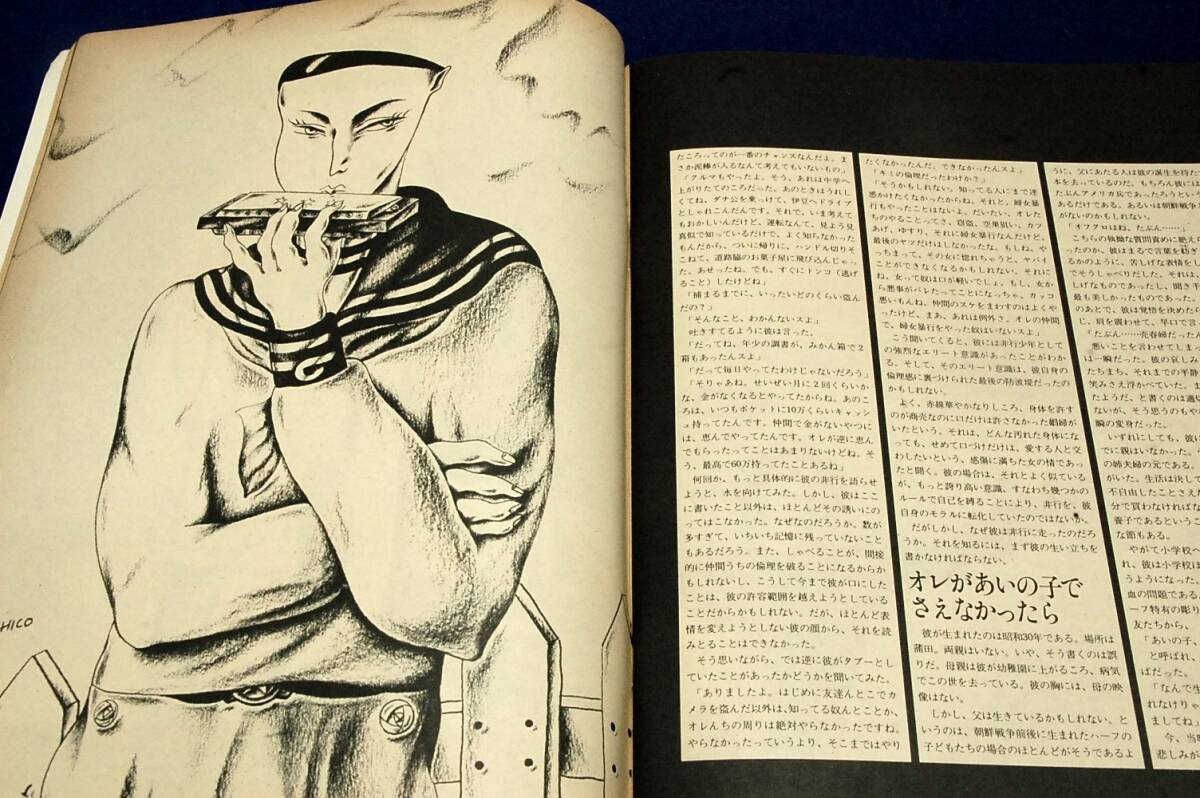 HICO
たころってのが一番のチャンスなんだよ。ま
さか泥棒が入るなんて考えてもいないもの」
「クルマもやったよ。そう、あれは中学へ
上がりたてのころだった。あのときはうれし
くてね。ダナ公を乗っけて、伊豆へドライブ
としゃれこんだんです。それで、いま考えて
もおかしいんだけど、運転なんて、見よう見
真似で知っているだけで、よく知らなかった
もんだから、ついに帰りに、ハンドル切りそ
こねて、道路脇のお菓子屋に飛び込んじゃっ
た。あせったね。でも、すぐにトンコ（逃げ
ること）したけどね」
「捕まるまでに、いったいどのくらい盗ん
だの？」
「そんなこと、わかんないスよ」
吐きすてるように彼は言った。
「だってね、年少の調書が、みかん箱で２
箱もあったんスよ」
「だって毎日やってたわけじゃないだろう」
「そりゃあね。せいぜい月に２回くらいか
な、金がなくなるとやってたからね。あのこ
ろは、いつもポケットに10万くらいキャッシ
ュ持ってたんです。仲間で金がないやつに
は、恵んでやってたんです。オレが逆に恵ん
でもらったってことはあまりないけどね。そ
う、最高で60万持ってたことあるね」
何回か、もっと具体的に彼の非行を語らせ
ようと、水を向けてみた。しかし、彼はここ
に書いたこと以外は、ほとんどその誘いにの
ってはこなかった。なぜなのだろうか。数が
多すぎて、いちいち記憶に残っていないこと
もあるだろう。また、しゃべることが、間接
的に仲間うちの倫理を破ることになるからか
もしれないし、こうして今まで彼が口にした
ことは、彼の許容範囲を越えようとしている
ことだからかもしれない。だが、ほとんど表
情を変えようとしない彼の顔から、それを読
みとることはできなかった。
そう思いながら、では逆に彼がタブーとし
ていたことがあったかどうかを聞いてみた。
「ありましたよ。はじめに友達んとこでカ
メラを盗んだ以外は、知ってる奴んとことか、
オレんちの周りは絶対やらなかったですね。
やらなかったっていうより、そこまではやり
たくなかったんだ。できなかったんスよ」
「キミの倫理だったわけか？」
「そうかもしれない。知ってる人にまで迷
惑かけたくなかったからね。それと、婦女暴
行もやったことはないよ。だいたい、オレた
ちのやることってさ、窃盗、空巣狙い、カツ
あげ、ゆすり、それに婦女暴行なんだけど、
最後のヤツだけはしなかったな。もしね、や
っちまって、その女に惚れちゃうと、ヤバイ
ことができなくなるかもしれない。それに
ね、女って奴は口が軽いでしょ。もし、女か
ら悪事がバレたってことになっちゃ、カッコ
悪いもんね。仲間のスケをまわすのはよくや
ったけど。まあ、あれは例外さ。オレの仲間
で、婦女暴行をやった奴はいないスよ」
こう聞いてくると、彼には非行少年として
の強烈なエリート意識があったことがわか
る。そして、そのエリート意識は、彼自身の
倫理感に裏づけられた最後の防波堤だったの
かもしれない。
よく、赤線華やかなりしころ、身体を許す
のが商売なのに口だけは許さなかった娼婦が
いたという。それは、どんな汚れた身体にな
っても、せめて口づけだけは、愛する人と交
わしたいという、感傷に満ちた女の情であっ
たと聞く。彼の場合は、それとよく似ている
が、もっと誇り高い意識、すなわち幾つかの
ルールで自己を縛ることにより、非行を、彼
自身のモラルに転化していたのではないか。
だがしかし、なぜ彼は非行に走ったのだろ
うか。それを知るには、まず彼の生い立ちを
書かなければならない。
オレがあいの子で
さえなかったら
彼が生まれたのは昭和30年である。場所は
蒲田。両親はいない。いや、そう書くのは誤
りだ。母親は彼が幼稚園に上がるころ、病気
でこの世を去っている。彼の胸には、母の映
像はない。
しかし、父は生きているかもしれない。と
いうのは、朝鮮戦争前後に生まれたハーフの
子どもたちの場合のほとんどがそうであるよ
うに、父にあたる人は彼の誕生を待た
本を去っているのだ。もちろん彼に
たぶんアメリカ兵であったろうという
あるだけである。あるいは朝鮮戦争
がないのかもしれない。
「オフクロはね、たぶん……」
こちらの執拗な質問責めに絶え
ったのか、彼はまるで言葉を紡ぎ
るかのように、苦しげな表情をし
でそうしゃべりだした。それは、
しげなものであったし、聞き手
最も美しかったものであった。
のあとで、彼は覚悟を決めた
じ、肩を震わせて、早口で言
「たぶん……売春婦だったん
悪いことを言わせてしまっ
は一瞬だった。彼の哀しみ
たちまち、それまでの平静
笑みさえ浮かべていた。ま
たようだ、と書くのは適切
ないが、そう思うのもや
瞬の変身だった。
いずれにしても、彼に
でに親はいなかった。
の姉夫婦の元である。
がいた。生活は決して
不自由したことさえ
分で買わなければな
養子であるという
な節もある。
やがて小学校へ
れ、彼は小学校
うようになった。
血の問題である。
ーフ特有の彫り
友だちから、
「あいの子、
と呼ばれ、
ばだった。
「なんで生
れなけりゃ
ましてね」
今、当時
悲しみが